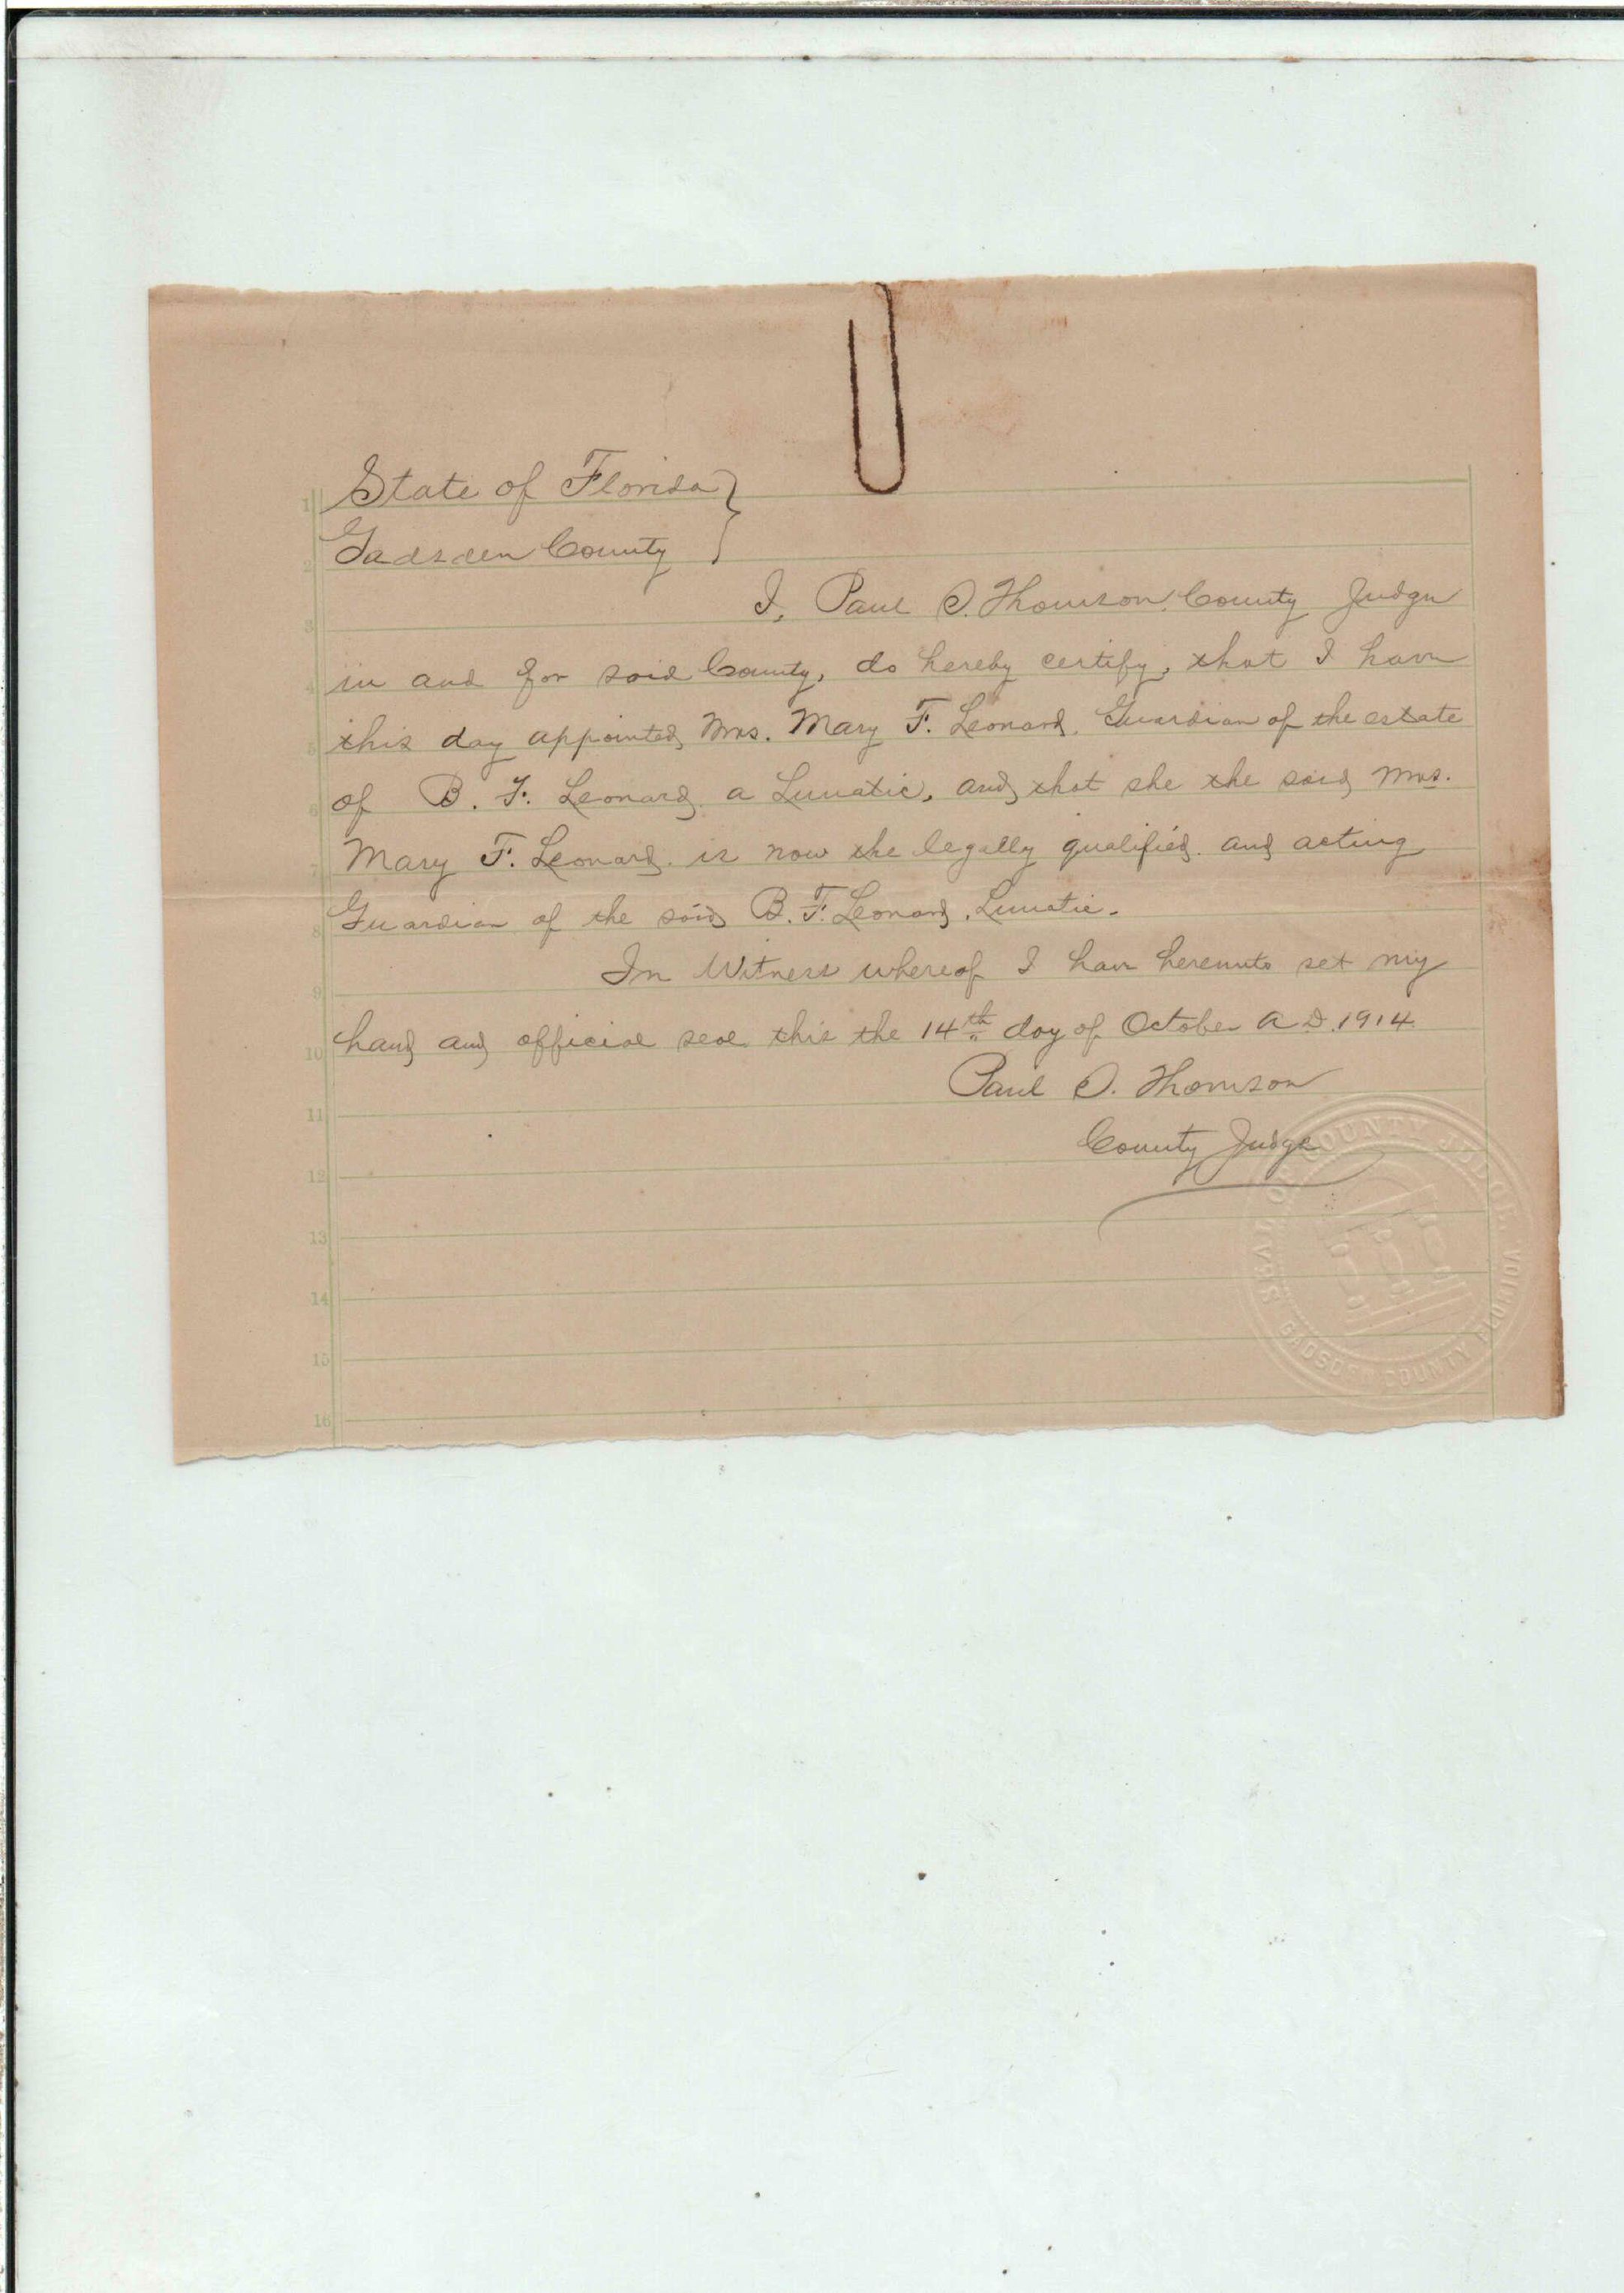 State of Florida }
Gadsden County }
I, Paul S. Thomson, County Judge
in and for said County, do hereby certify, that I have
this day appointed Mrs. Mary F. Leonard, Guardian of the estate
of B. F. Leonard, a Lunatic, and that she the said Mrs.
Mary F. Leonard is now the legally qualified and acting
Guardian of the said B. F. Leonard, Lunatic.
In Witness whereof I have hereunto set my
hand and official seal this the 14th day of October A.D. 1914
Paul S. Thomson
County Judge
SEAL OF COUNTY JUDGE.
GADSDEN COUNTY FLORIDA
1
2
3
4
5
6
7
8
9
10
11
12
13
14
15
16